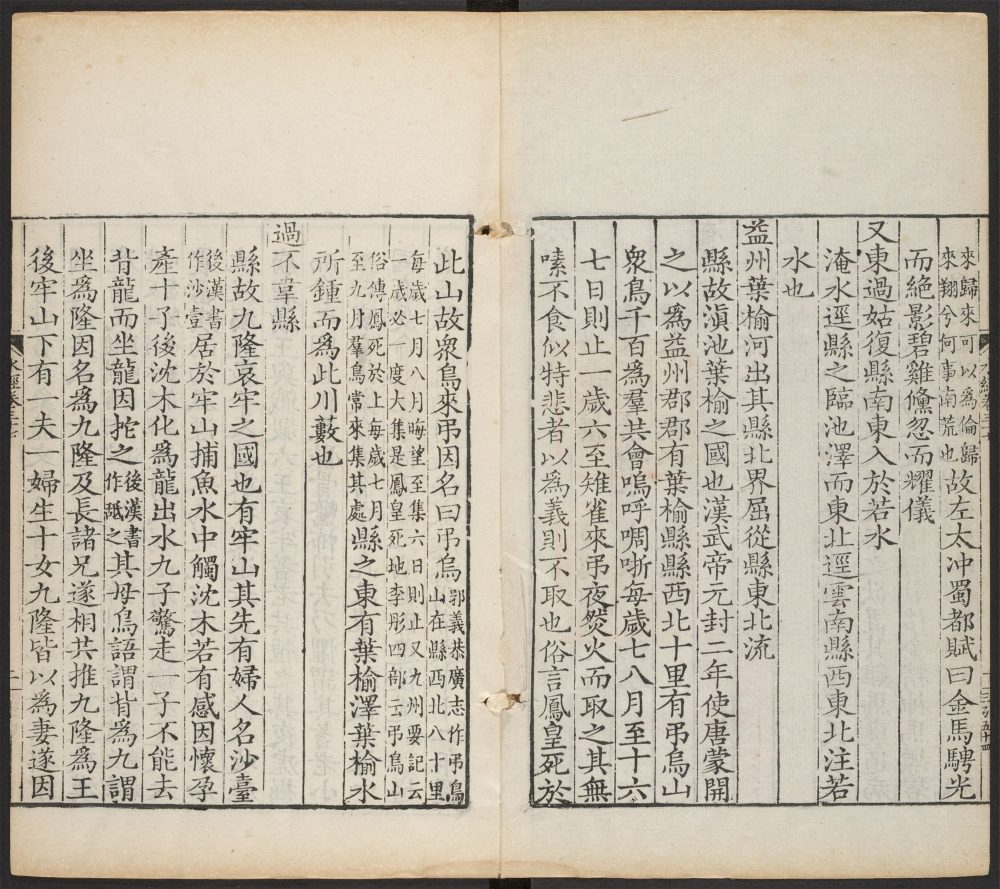 來歸來可以為倫歸
來翔兮何事南荒也
故左太冲蜀都賦曰金馬騁光
而絕影碧雞儵忽而耀儀
又東過姑復縣南東入於若水
淹水逕縣之臨池澤而東北逕雲南縣西東北注若
水也
益州葉榆河出其縣北界屈從縣東北流
縣故滇池葉榆之國也漢武帝元封二年使唐蒙開
之以為益州郡郡有葉榆縣縣西北十里有弔鳥山
衆鳥千百為羣其會嗚呼啁哳每歲七八月至十六
七日則止一歲六至雉雀來弔夜燃火而取之其無
嗉不食似特悲者以為義則不取也俗言鳳皇死於
此山故衆鳥來弔因名曰弔鳥
郭義恭廣志作弔鳥
山在縣西北八十里
每歲七月八月晦望至集六日則止又九州要記云
一歲必一度大集是鳳皇死地李彤四部云弔鳥山
俗傳鳳死於上每歲七月
至九月羣鳥常來集其處
縣之東有葉榆澤葉榆水
所鍾而為此川藪也
過不韋縣
縣故九隆哀牢之國也有牢山其先有婦人名沙臺
後漢書
作沙壹
居於牢山捕魚水中觸沈木若有感因懷孕
產十子後沈木化為龍出水九子驚走一子不能去
背龍而坐龍因扡之
後漢書
作䑛之
其母鳥語謂背為九謂
坐為隆因名為九隆及長諸兄遂相共推九隆為王
後牢山下有一夫一婦生十女九隆皆以為妻遂因
水經卷三十七